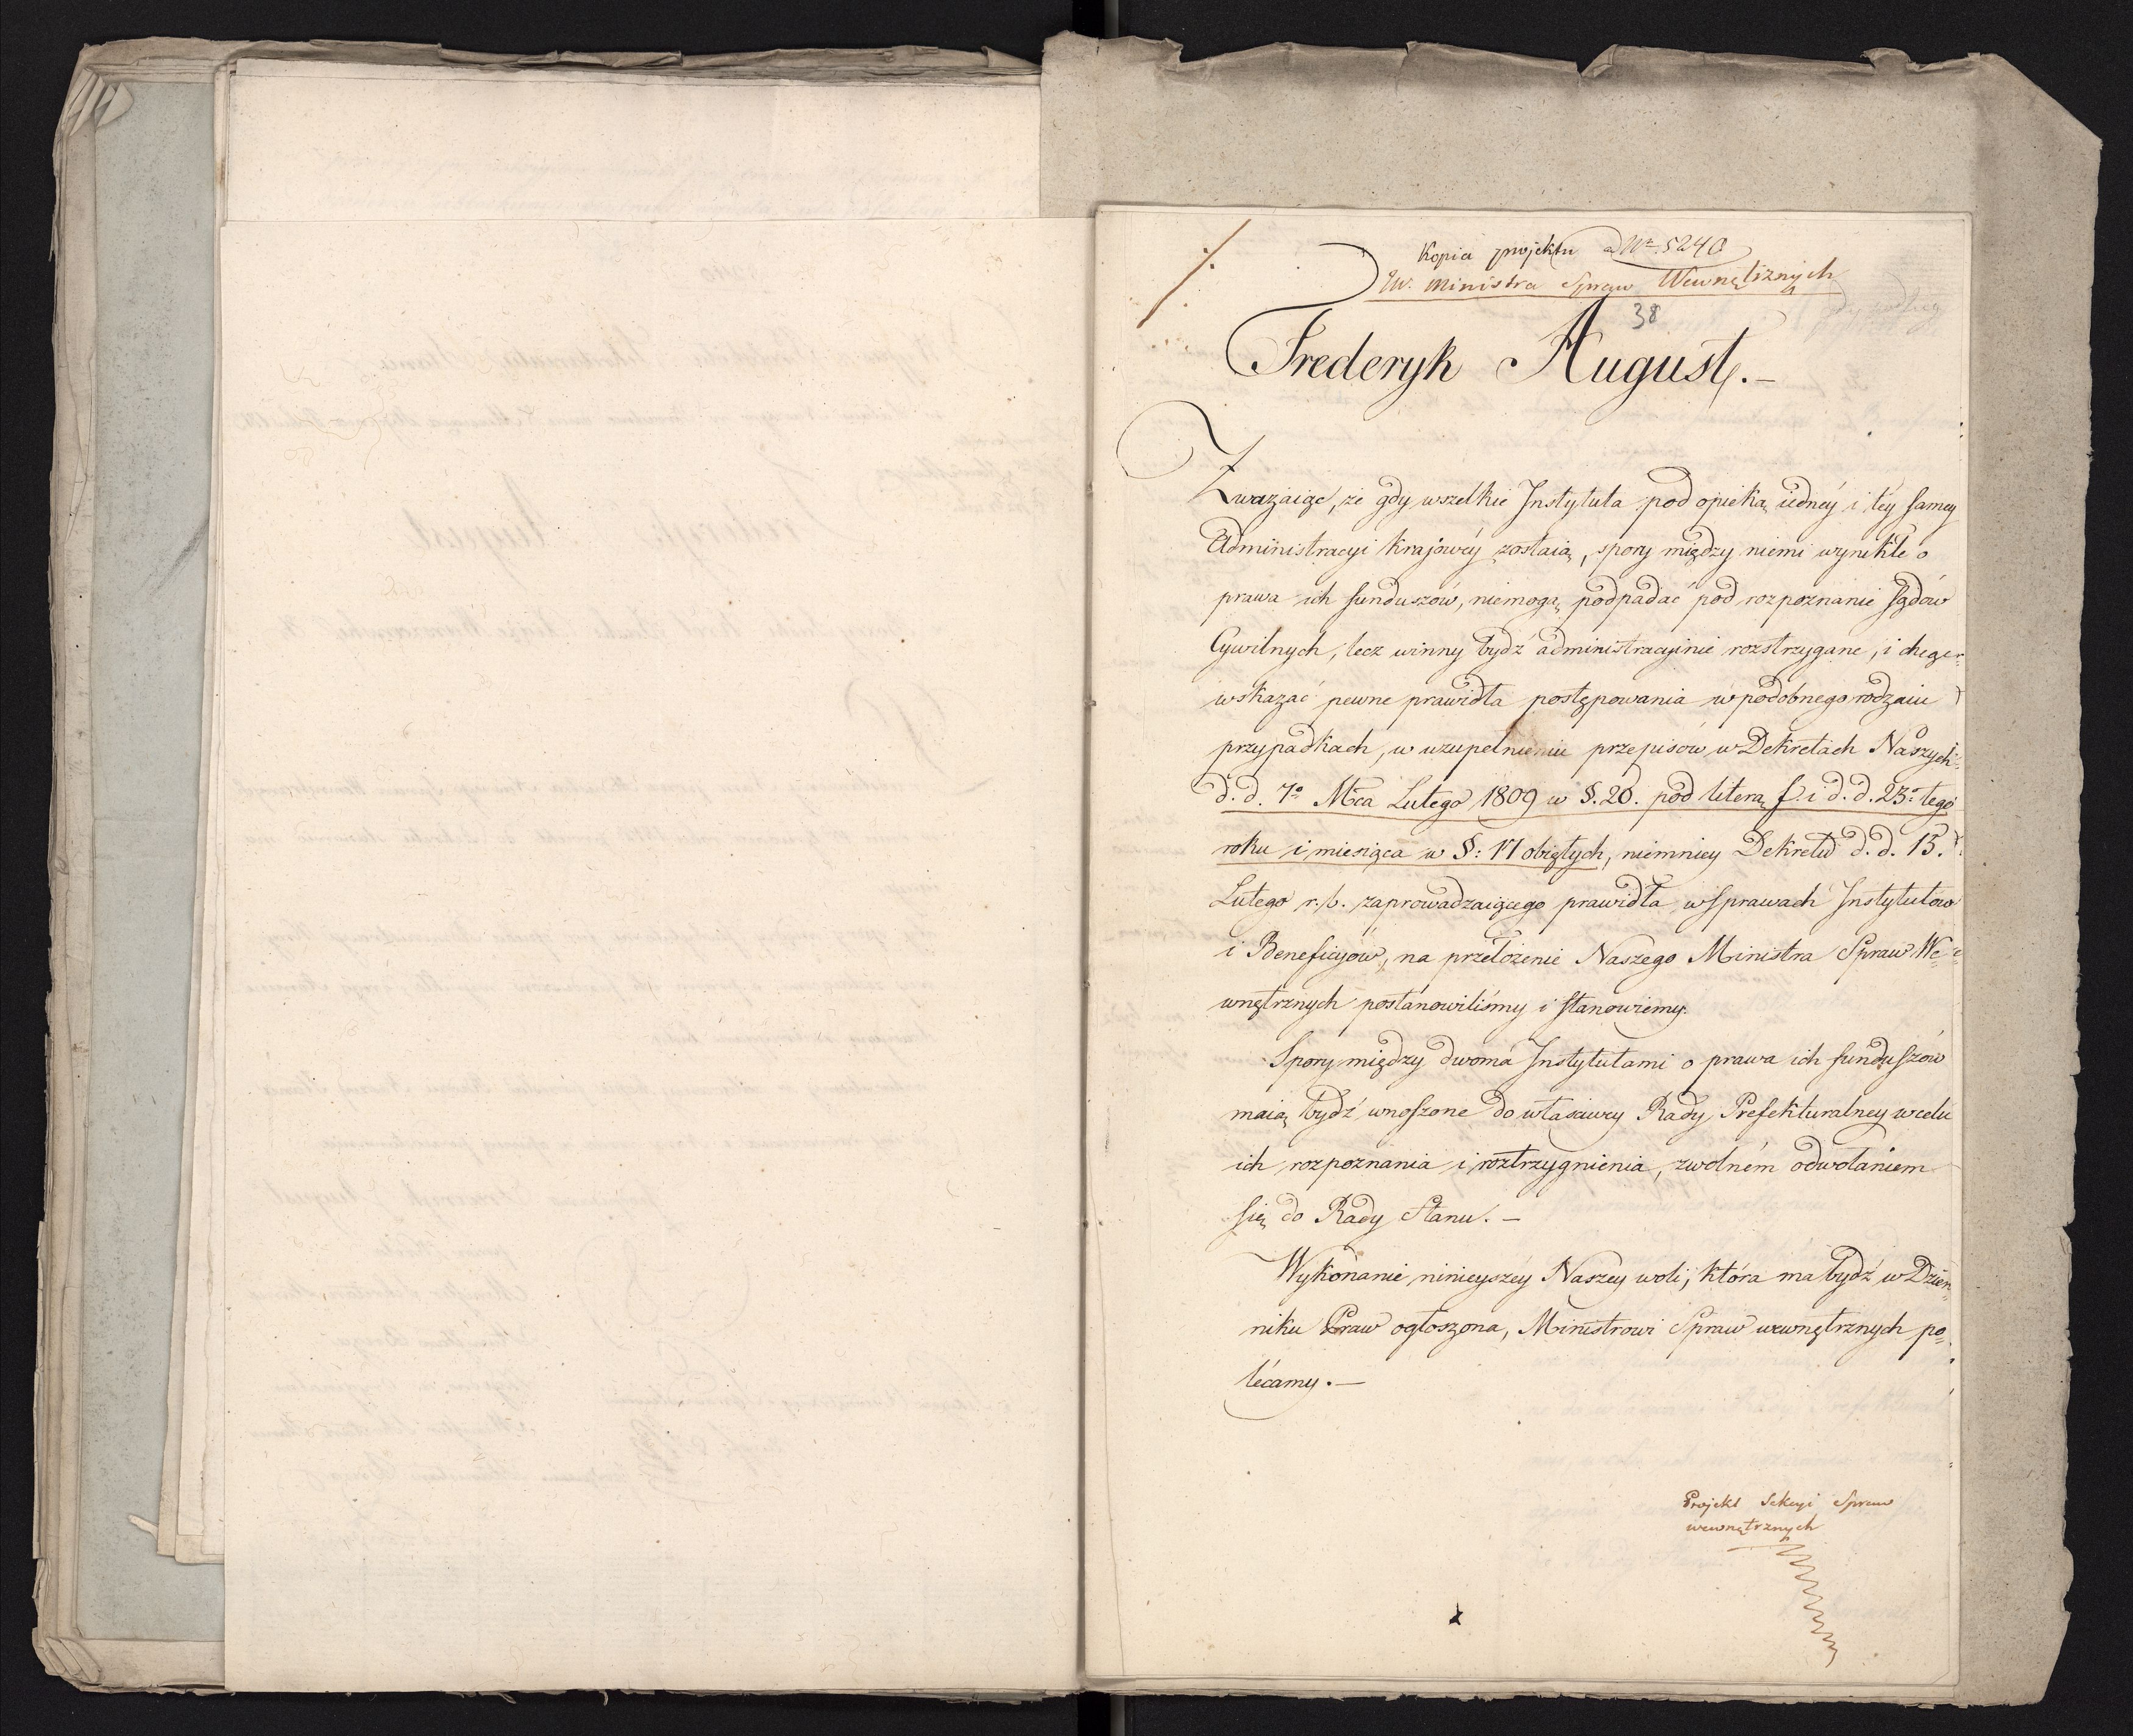 Kopia projektu ad Nr. 5240
JW. Ministra Spraw Wewnętrznych
38
Frederyk August.–
Zważaiąc, że gdy wszelkie Instytuta pod opieką iednéy i téy samey
Administracyi krajowéy zostaią, spory między niemi wynikłe o
prawa ich funduszów, niemogą podpadać pod rozpoznanie sądów
Cywilnych, lecz winny bydź administracyinie rozstrzygane, i chcąc
wskazać pewne prawidła postępowania w podobnego rodzaiu
przypadkach, w uzupełnieniu przepisów w Dekretach Naszych
d. d. 7o Mca Lutego 1809 w §. 20. pod literą f. i d. d. 23. tego
roku i miesiąca w §: 17 obiętych, niemniey Dekretu d. d. 13.
Lutego r. b. zaprowadzaiącego prawidła w sprawach Instytutów
i Beneficyów, na przełożenie Naszego Ministra Spraw We=
wnętrznych postanowiliśmy i stanowiemy.
Spory między dwoma Instytutami o prawa ich funduszów
maią bydź wnoszone do właściwey Rady Prefekturalney w celu
ich rozpoznania i roztrzygnienia, z wolném odwołaniem
się do Rady Stanu. –
Wykonanie ninieyszéy Naszey woli, która ma bydź w Dzien=
niku Praw ogłoszona, Ministrowi Spraw wewnętrznych po=
lécamy. –
Projekt Sekcyi Spraw
wewnętrznych